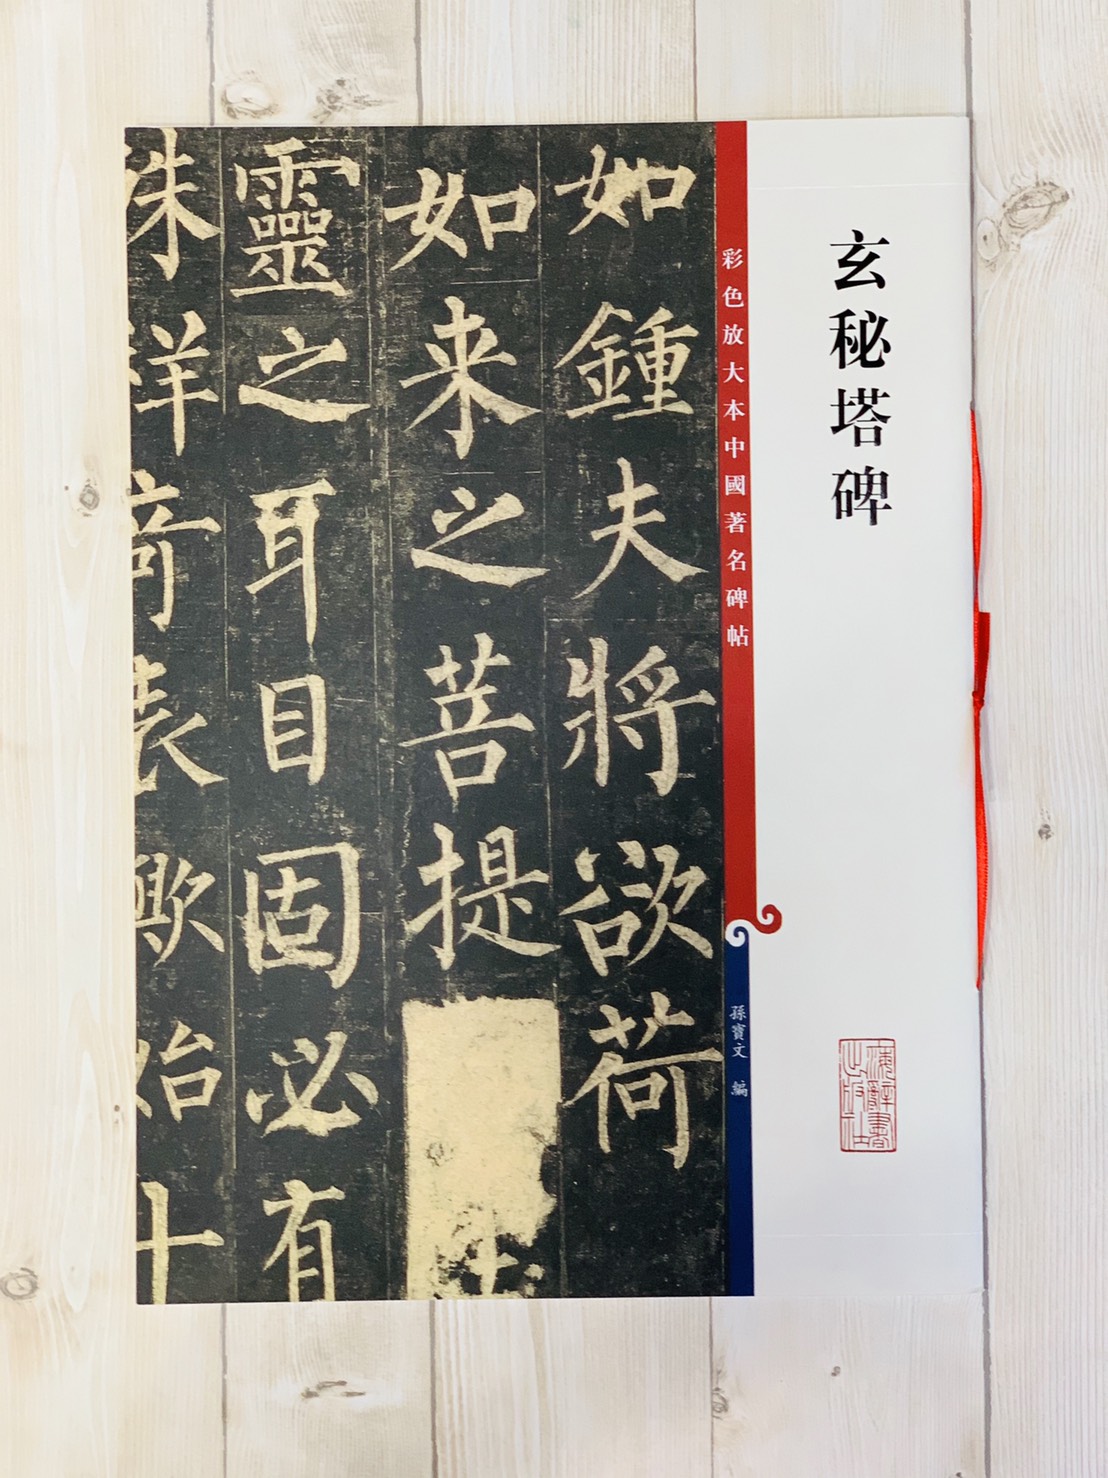 玄秘塔碑
海辭書
出版社
彩色放大本中國著名碑帖
孫寶文 編
如鍾夫將欲荷
如来之菩提
靈之耳目固必有
殊祥奇表歟始十